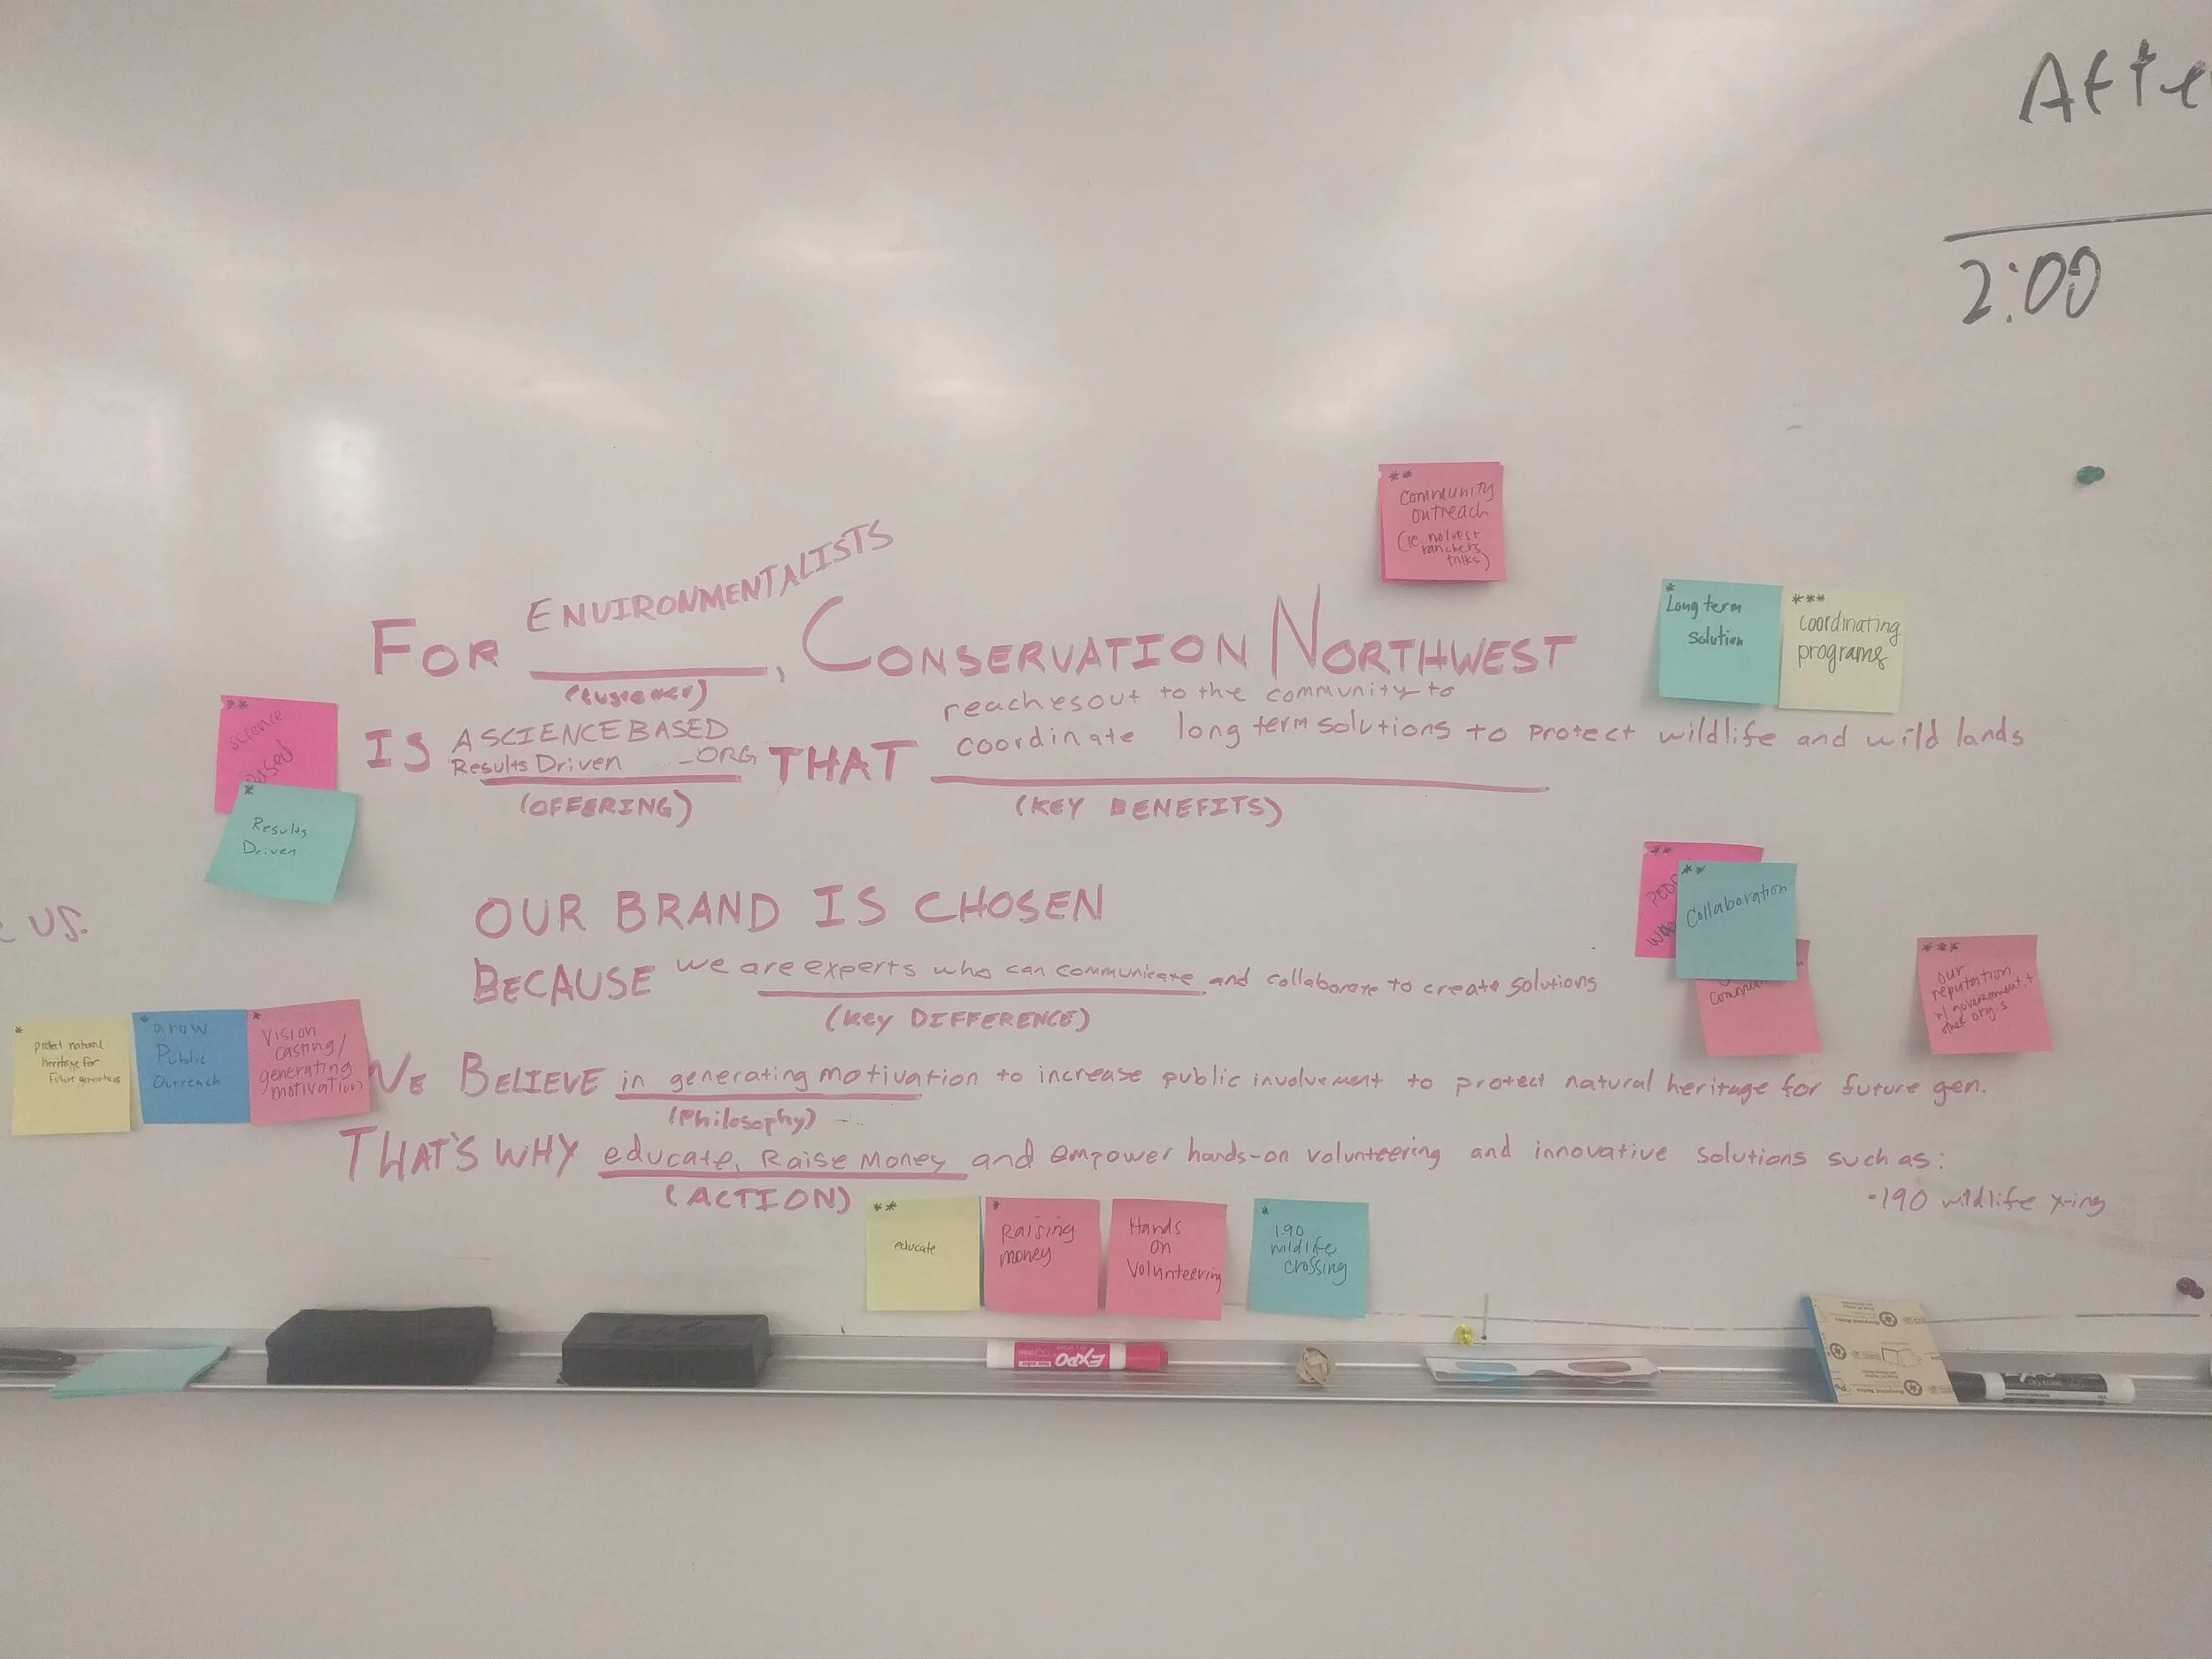 Afte
2:00
**
Community
outreach
ranchers
talks)
ENVIRONMENTALISTS
FOR ________, CONSERVATION NORTHWEST
(customer)
*
Long term
solution
***
coordinating
programs
**
science
based
*
Results
Driven
reaches out to the community to
IS A SCIENCE BASED THAT coordinate long term solutions to protect wildlife and wild lands
Results Driven _ORG
(OFFERING)
(KEY BENEFITS)
US.
OUR BRAND IS CHOSEN
BECAUSE we are experts who can communicate and collaborate to create solutions
(Key DIFFERENCE)
**
**
Collaboration
***
our
reputation
w/ government +
other org.s
*
protect natural
heritage for
Future generations
*
Public
Outreach
*
Vision
casting/
generating
motivation
WE BELIEVE in generating motivation to increase public involvement to protect natural heritage for future gen.
(Philosophy)
THAT'S WHY educate, Raise Money and empower hands-on volunteering and innovative solutions such as:
(ACTION)
-I90 wildlife x-ing
**
educate
*
Raising
money
Hands
on
Volunteering
*
I.90
wildlife
crossing
EXPO